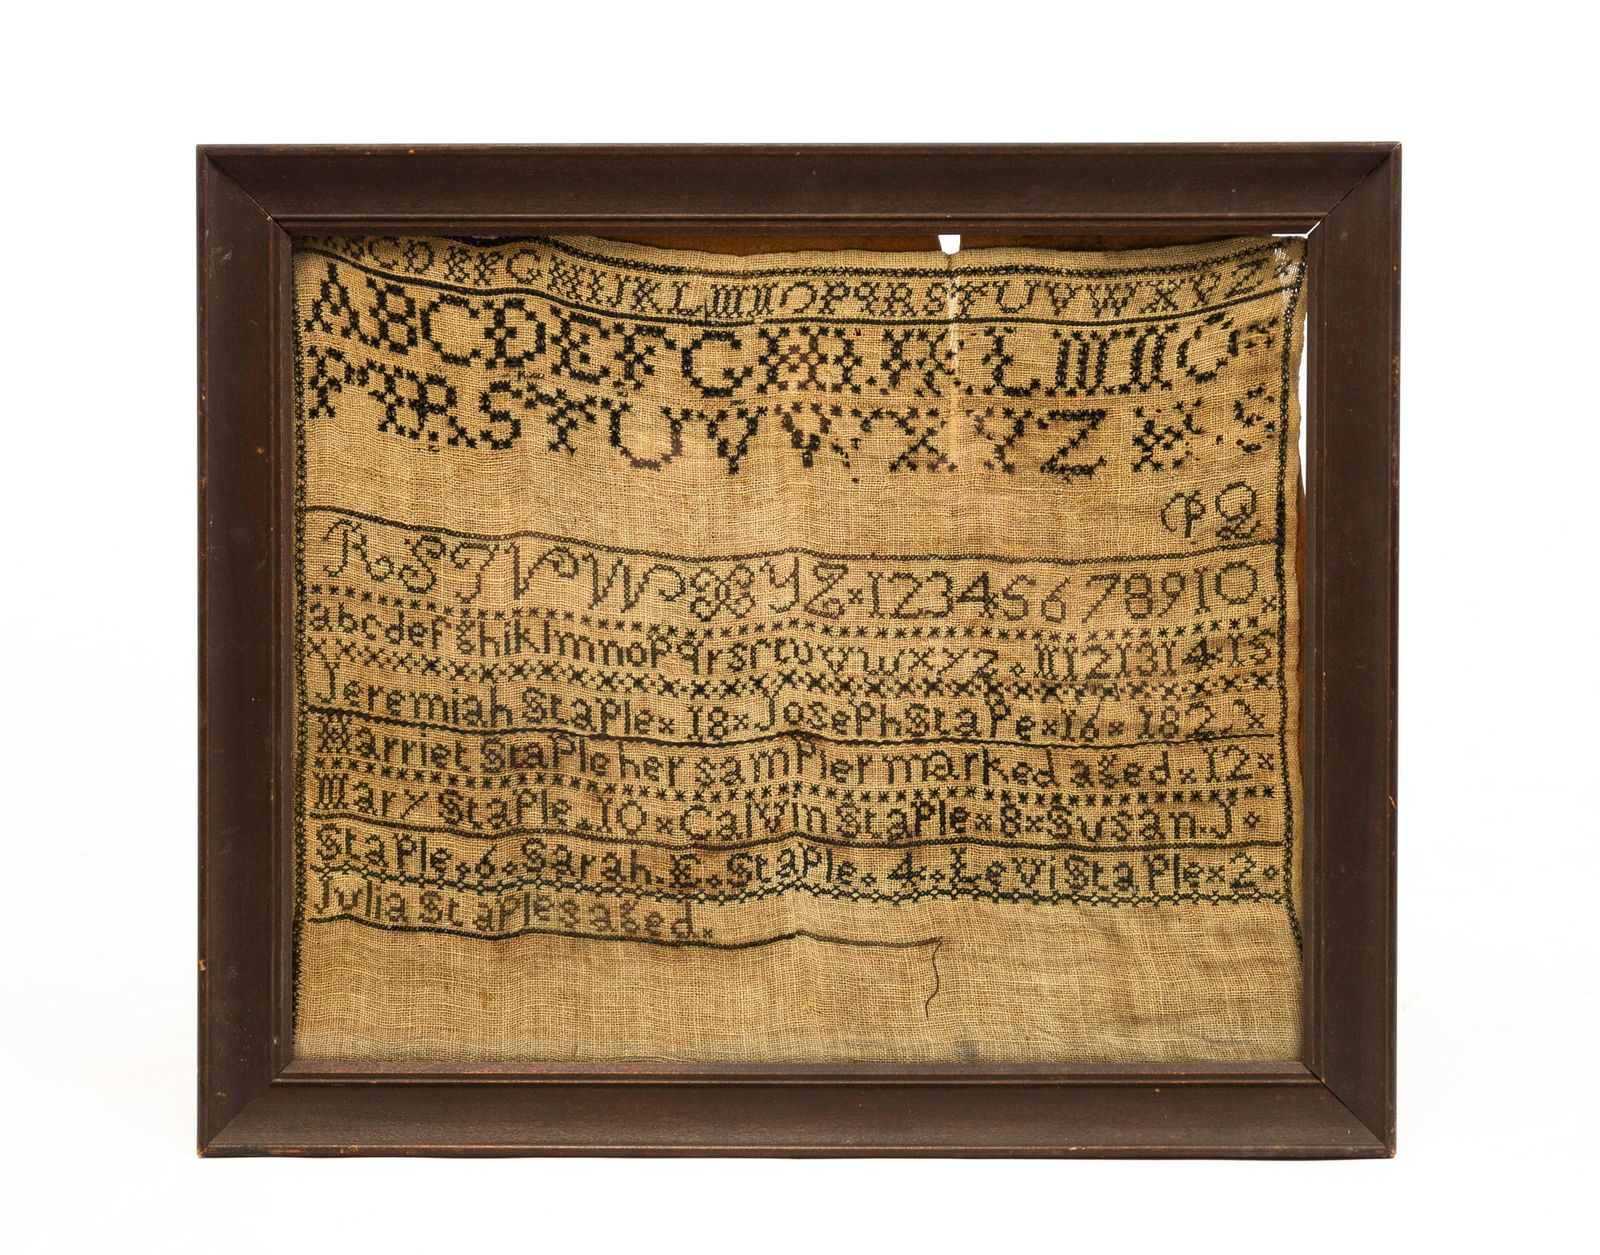 ABCDEFGHIJKLMNOPQRSTUVWXYZ
ABCDEFGHIKLMNO
PQRSTUVWXYZ
PQ
RSTVWXYZ×12345678910×
abcdefghiklmnopqrstuvwxyz. 11 12 13 14 15
Jeremiah Staple×18×Joseph Stape×16×182
Harriet Staple her sampler marked aged×12×
Mary Staple.10×Calvin Staple×8×Susan.J.
Staple.6.Sarah.E.Staple.4.Levi Staple×2.
Julia Staples aged×